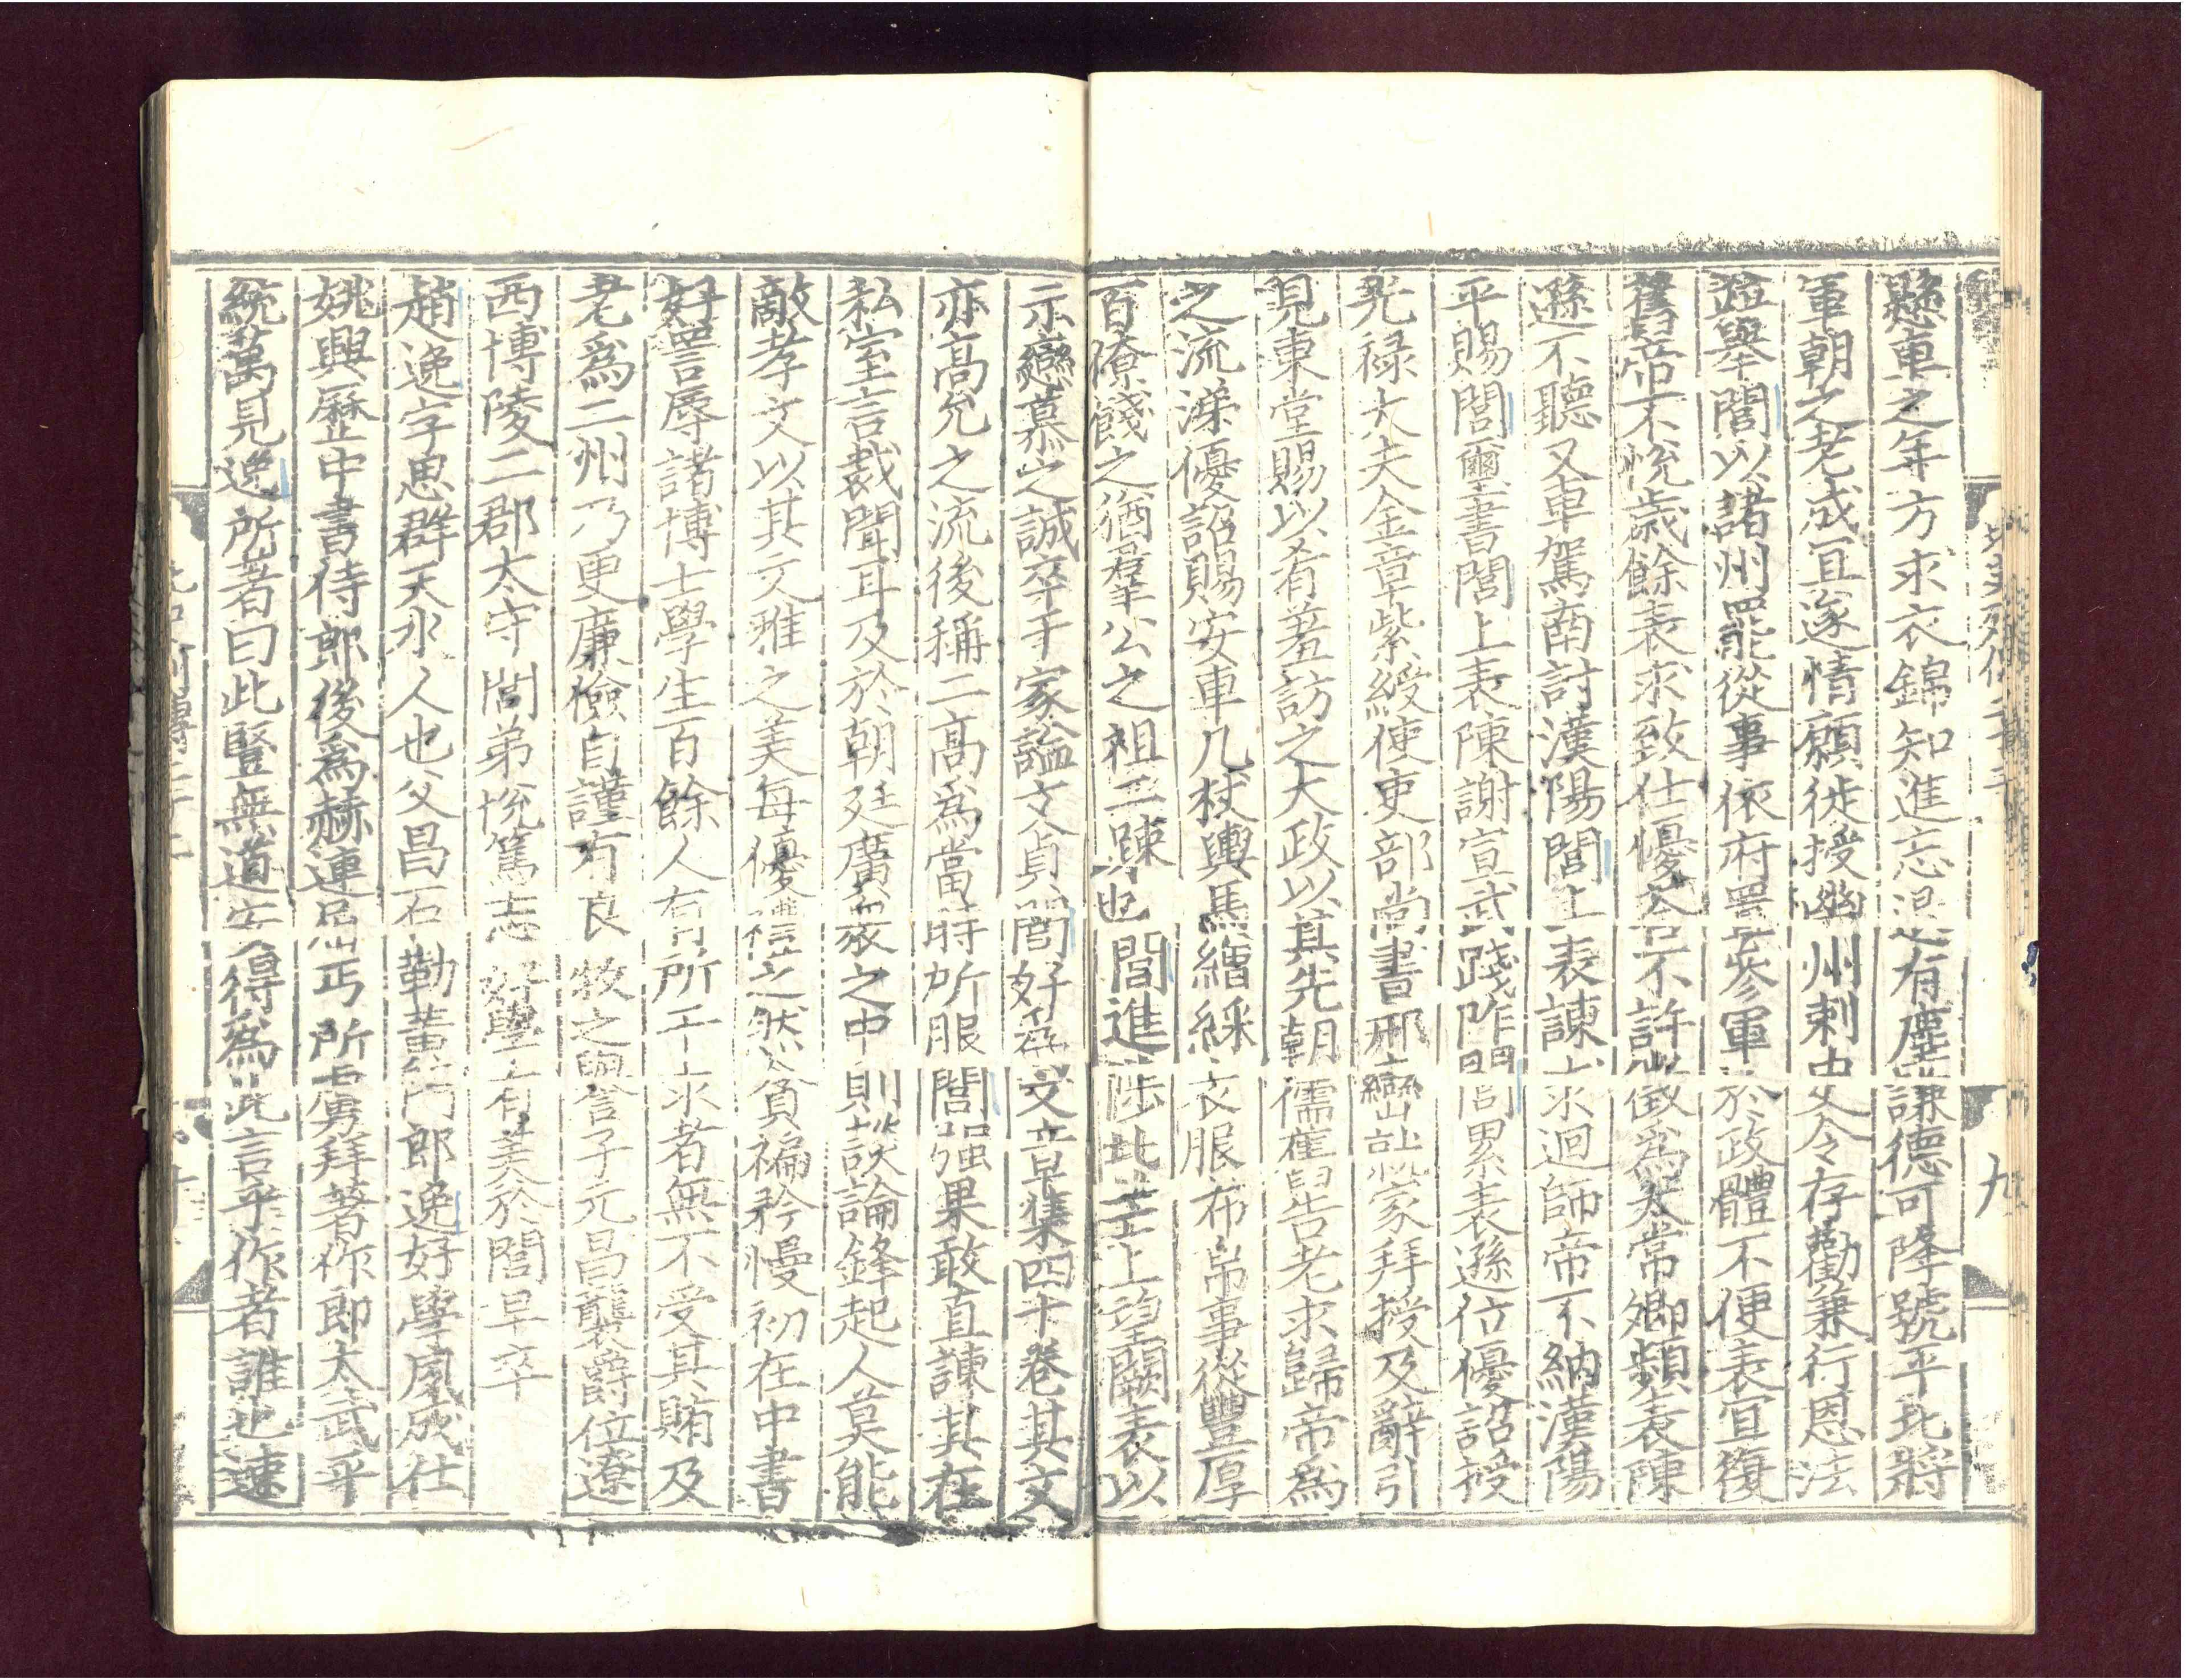 懸車之年方求衣錦知進忘退有塵謙德可降號平北將
軍朝之老成宜遂情願徙授幽州刺史令存勸兼行恩法
並舉閭以諸州罷從事依府置參軍於政體不便表宜復
舊帝不悅歲餘表求致仕優荅不許徵爲太常卿頻表陳
遜不聽又車駕南討漢陽閭上表諫求迴師帝不納漢陽
平賜閭璽書閭上表陳謝宣武踐阼閭累表遜位優詔授
光祿大夫金章紫綬使吏部尚書邢巒就家拜授及辭引
見東堂賜以肴羞訪之大政以其先朝儒舊告老求歸帝爲
之流涕優詔賜安車几杖輿馬繒綵衣服布帛事從豐厚
百僚餞之猶羣公之祖二踈也閭進陟北芒上望闕表以
示戀慕之誠卒于家諡文貞閭好爲文章集四十卷其文
亦高允之流後稱二高爲當時所服閭强果敢直諫其在
私室言裁聞耳及於朝廷廣衆之中則談論鋒起人莫能
敵孝文以其文雅之美每優禮之然貪褊矜慢初在中書
好詈辱諸博士學生百餘人有所干求者無不受其賄及
老爲二州乃更廉儉自謹有良牧之譽子元昌襲爵位遼
西博陵二郡太守閭弟悅篤志好學有美於閭早卒
趙逸字思群天水人也父昌石勒黃門郎逸好學夙成仕
姚興歷中書侍郎後爲赫連屈丐所虜拜著作郎太武平
統萬見逸所著曰此豎無道安得爲此言乎作者誰也速
北史列傳二十二
九